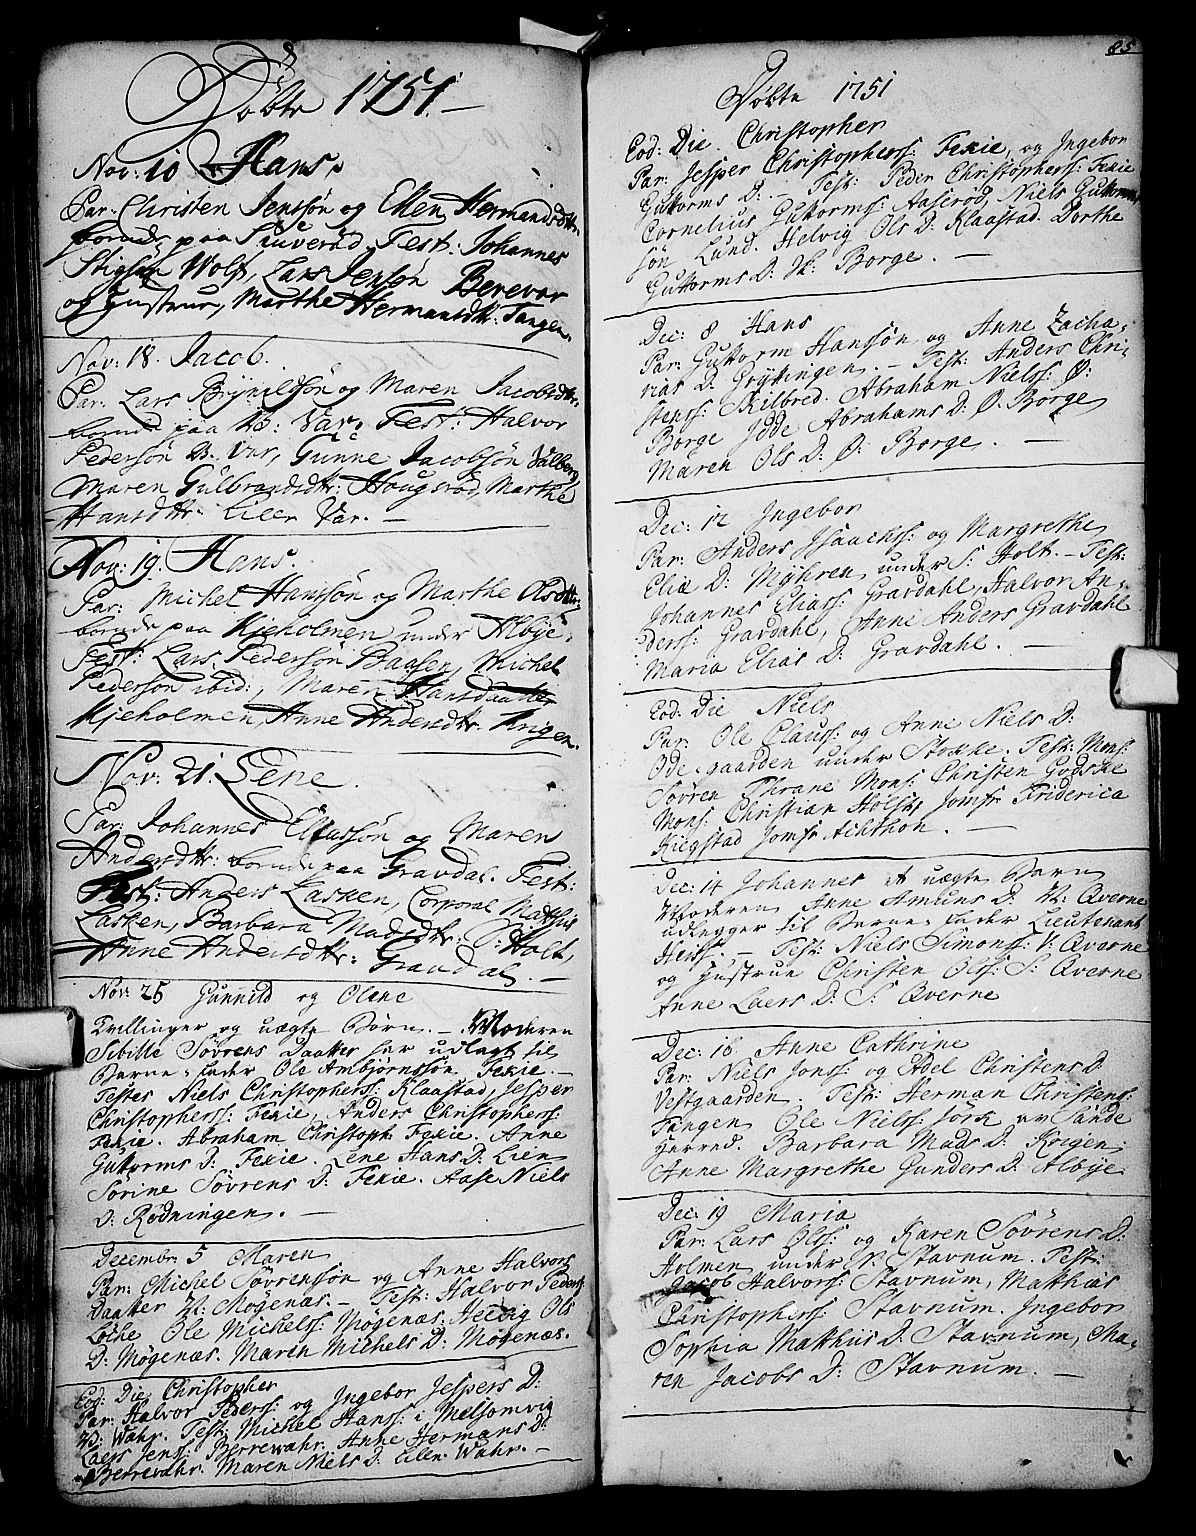 Döbte 1751.
Nov: 10 Hans.
Par: Christen Jensøn og Ellen Hermandsdtr.
boende paa Test: Johannes
Stigsøn Wolf, Lars Jensøn Berevar
og Hustrue, Marthe Hermansdtr: Tangen.
Nov: 18. Jacob.
Par: Lars Brynildsøn og Maren Jacobsdtr.
boende paa W: Var. Test: Halvor
Pedersøn W. Var, Gunne Jacobsøn Valberg,
Maren Gulbrandsdtr: Hougsrød, Marthe
Hansdtr: Lille Var. —
Nov: 19. Hans.
Par: Michel Hansøn og Marthe Olsdtr:
boende paa Kjeholmen under Albye.
Test: Lars Pedersøn Baasen, Michel
Pedersøn ibid:, Maren Hansdaatter
Kjeholmen, Anne Andersdtr. Krigen.
Nov: 21. Lene.
Par: Johannes Eliassøn og Maren
Andersdtr: boende paa Gravdal. Test:
Test: Anders Lasken, Corporal Mathis
Lasken, Barbara Madsdtr: S: Holt,
Anne Andersdtr: Gravdal. —
Nov: 25 Gunnild og Olene
Tvillinger og uægte Børn. — Moderen
Sibille Søvrens Daatter har udlagt til
Barne-fader Ole Ambjørnssøn Fexie. —
Testes Niels Christophers: Klaastad, Jesper
Christophers: Fexie, Anders Christophers:
Fexie. Abraham Christoph: Fexie. Anne
Guttorms D: Fexie. Lene Hans D: Lien
Sørine Søvrens D: Fexie. Aase Niels
D: Rødningen. —
Decembr: 5 Maren
Par: Michel Søvrensøn og Anne Halvors
Daatter W: Møgenæs. — Test: Halvor Peders:
Løche Ole Michels: Møgenæs. Hedvig Ols
D: Møgenæs. Maren Michels D: Møgenæs.
Eod: Die Christopher
Par: Halvor Peders: og Ingebor Jespers D:
W: Wahr. Test: Michel Hans: i Melsomvig
Laers Jens: Berrewahr. Anne Hermans D:
Berrewahr. Maren Niels D: Lille Wahr. —
85
Døbte 1751
Eod: Die. Christopher
Par: Jesper Christophers: Fexie, og Ingebor
Guttorms D: — Test: Peder Christophers: Fexie
Cornelius Guttorms: Aaserød, Niels Guttorms
søn Lund. Helvig Ols D: Klaastad. Dorthe
Guttorms D: Borge. —
Dec: 8 Hans
Par: Guttorm Hansøn og Anne Zacha-
rias D: Grytingen. — Test: Anders Chri-
stens: Kilbred. Abraham Niels: Ø:
Borge Idde Abrahams D: Ø. Borge
Maren Ols D: Ø: Borge. —
Dec: 12 Ingebor
Par: Anders Isaachs: og Margrethe
Eliæ D: Myhren under S: Holt. — Test:
Johannes Elias: Gravdahl, Halvor An-
ders: Gravdahl, Anne Anders Gravdahl
Maria Elias D: Gravdahl. —
Eod: Die Niels
Par: Ole Claus: og Anne Niels D:
Øde-gaarden under Stokke. Test: Mons:
Søvren Thrane Mons: Christen Godske
Mons: Christian Holst Jomfr Friderica
Kiegstad Jomfr. Achthon. —
Dec: 14 Johannes et uægte Barn
Moderen Anne Amuns D: N: Qverne
udlegger til Barne-fader Lieutenant
Heiss. — Test: Niels Simons: V: Qverne
og Hustrue Christen Ols: S: Qverne
Anne Laers D: S: Qverne
Dec: 16 Anne Cathrine
Par: Niels Jons: og Adel Christens D:
Vestgaarden. Test: Herman Christens:
Tangen Ole Niels: Sørk av Sande
Herred. Barbara Mads D: Krigen:
Anne Margrethe Gunders D: Albye
Dec: 19 Maria
Par: Lars Ols: og Karen Søvrens D:
Holmen under N: Stavnum. Test:
Jacob Halvors: Stavnum, Mathias
Christophers: Stavnum. Ingebor
Sophia Matthis D: Stavnum, Ma-
ren Jacobs D: Stavnum. —